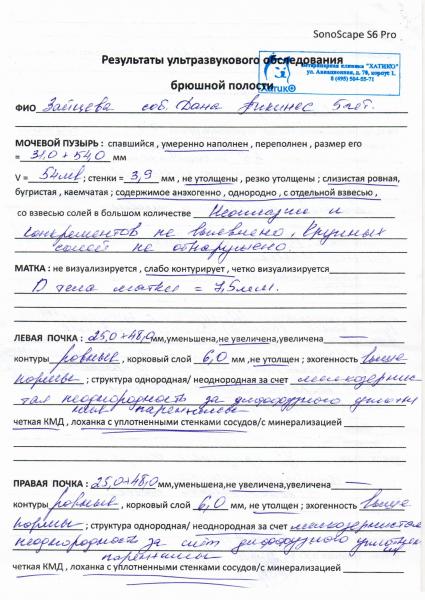 SonoScape S6 Pro
Результаты ультразвукового обследования
брюшной полости
Ветеринарная клиника "ХАТИКО"
ул. Авиационная, д. 70, корпус 1.
8 (495) 504-55-71
ХАТИКО
ФИО Зайцева соб. Дана пикинес 5 лет.
МОЧЕВОЙ ПУЗЫРЬ : спавшийся , умеренно наполнен , переполнен , размер его
= 31,0 + 54,0 мм
V = 54 мл ; стенки = 3,9 мм , не утолщены , резко утолщены ; слизистая ровная,
бугристая , каемчатая ; содержимое анэхогенно , однородно , с отдельной взвесью ,
со взвесью солей в большом количестве Неоплазии и
конкрементов не выявлено, Крупных
солей не обнаружено.
МАТКА : не визуализируется , слабо контурирует , четко визуализируется
D тела матки = 7,5 мм.
ЛЕВАЯ ПОЧКА : 25,0+48,0 мм,уменьшена,не увеличена,увеличена
контуры ровные , корковый слой 6,0 мм ,не утолщен ; эхогенность выше
нормы ; структура однородная/ неоднородная за счет мелкозернис-
тая неоднородность за диффузного уплотне
ния паренхимы
четкая КМД , лоханка с уплотненными стенками сосудов/с минерализацией
ПРАВАЯ ПОЧКА : 25,0+48,0 мм,уменьшена,не увеличена,увеличена
контуры ровные , корковый слой 6,0 мм, не утолщен ; эхогенность выше
нормы ; структура однородная/ неоднородная за счет мелкозернистая
неоднородность за счёт диффузного уплотнен
ия паренхимы
четкая КМД , лоханка с уплотненными стенками сосудов/с минерализацией